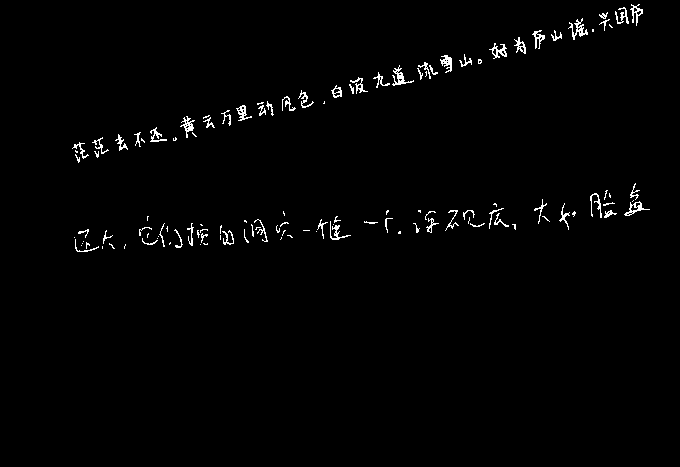 茫茫去不还。黄云万里动风色,白波九道流雪山。好为庐山谣,兴因庐
还大,它们挖的洞穴一个连一个,深不见底,大如脸盆